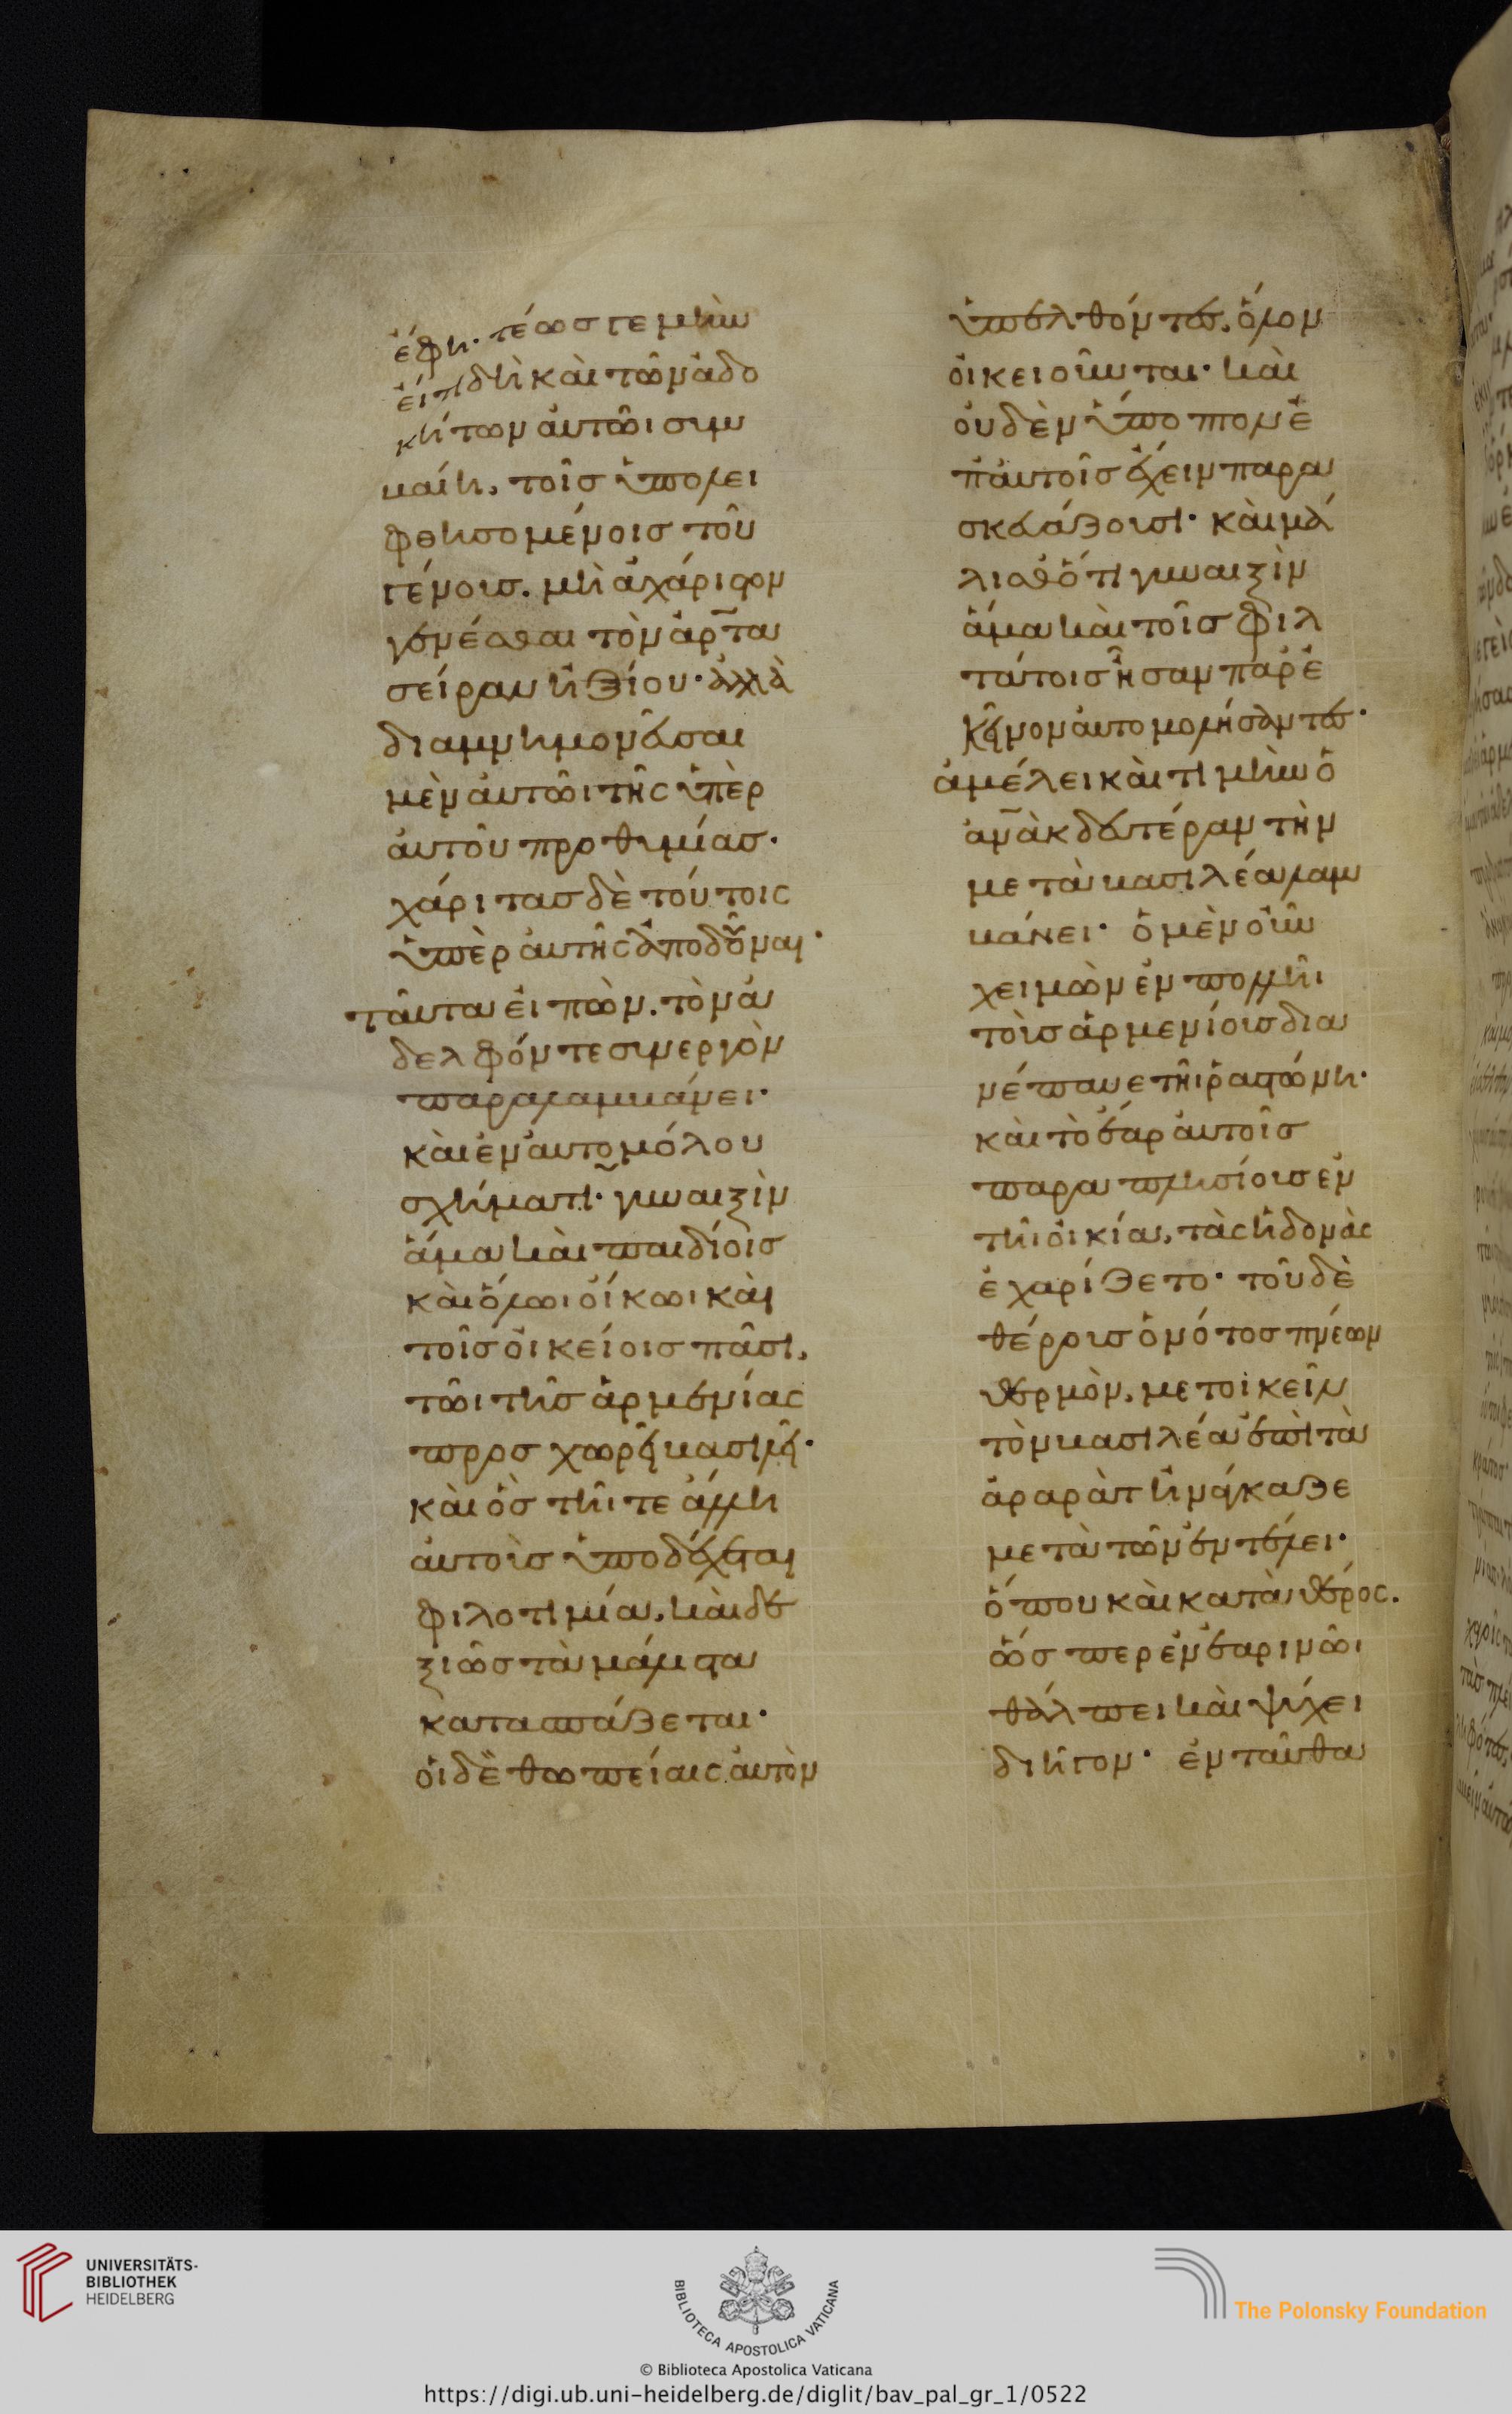 ἔφη· τέωστε μὴν
εἴτι δὴ καὶ τῶν ἀδο
κήτων αὐτῶι συμ
βαίη, τοῖς ὑπολει
φθησομένοις τοῦ
γένους. μὴ ἀχάριστον
γενέσθαι τὸν ἀρτα
σείραν ἠξίου· ἀλλὰ
διαμνημονεῦσαι
μὲν αὐτῶι τῆς ὑπὲρ
αὐτοῦ προθυμίας·
χάριτας δὲ τούτοις
ὑπὲρ αὐτῆς ἀποδοῦναι·
ταῦτα εἰπὼν. τὸν ἀ
δελφόν τε συνεργὸν
παραλαμβάνει·
καὶ ἐν αὐτομόλου
σχήματι· γυναιξὶν
ἅμα καὶ παιδίοις
καὶ ὅλωι οἴκωι καὶ
τοῖς οἰκείοις πᾶσι,
τῶι τῆς ἀρμενίας
προσχωρεῖ βασιλεῖ·
καὶ ὃς τῆι τε ἄλλη
αὐτοὺς ὑποδέχεται
φιλοτιμία, καὶ δε
ξιῶς τὰ μάλιστα
κατασπάζεται·
οἱ δὲ θωπείαις αὐτὸν
ὑπελθόντες, ὅλον
οἰκειοῦνται· καὶ
οὐδὲν ὕποπτον ἐ
π' αὐτοῖς ἔχειν παρα
σκευάζουσι· καὶ μά
λισθ' ὅτι γυναιξὶν
ἅμα καὶ τοῖς φιλ
τάτοις ἦσαν παρ' ἐ
κεῖνον αὐτομολήσαντες·
ἀμέλει καὶ τιμὴν ὁ
ἀνὰκ δευτέραν τὴν
μετὰ βασιλέα λαμ
βάνει· ὁ μὲν οὖν
χειμὼν ἐν πολλῆι
τοὺς ἀρμενίους δια
νέπαυε τῆι ῥαστώνη·
καὶ τὸ ἔαρ αὐτοῖς
παραπλησίους ἐν
τῆι οἰκία, τὰς ἡδονὰς
ἐχαρίζετο· τοῦ δὲ
θέρους ὁ νότος πνέων
θερμὸν, μετοικεῖν
τὸν βασιλέα ἐπὶ τὰ
ἀραρὰτ ἠνάγκαζε
μετὰ τῶν ἐν τέλει·
ὅπου καὶ κατὰ θέρος.
ὥσπερ ἐν ἐαρινῶι
θάλπει καὶ ψύχει
διῆγον· ἐνταῦθα
UNIVERSITÄTS-
BIBLIOTHEK
HEIDELBERG
BIBLIOTECA APOSTOLICA VATICANA
© Biblioteca Apostolica Vaticana
The Polonsky Foundation
https://digi.ub.uni-heidelberg.de/diglit/bav_pal_gr_1/0522